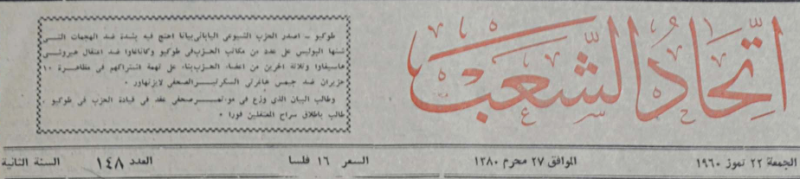 اتحاد الشعب
طوكيو – اصدر الحزب الشيوعي الياباني بيانا احتج فيه بشدة ضد الهجمات التي
شنها البوليس على عدد من مكاتب الحزب في طوكيو وكاناغاوا ضد اعتقال هيروشي
هاسيغاوا وثلاثة اخرين من اعضاء الحزب بناء على تهمة اشتراكهم في مظاهرة ١٠
حزيران ضد جيمس هاغرتي السكرتير الصحفي لايزنهاور ٠
وطالب البيان الذي وزع في مؤتمر صحفي عقد في قيادة الحزب في طوكيو ٠
طالب باطلاق سراح المعتقلين فورا ٠
الجمعة ٢٢ تموز ١٩٦٠ الموافق ٢٧ محرم ١٣٨٠ السعر ١٦ فلسا العدد ١٤٨ السنة الثانية